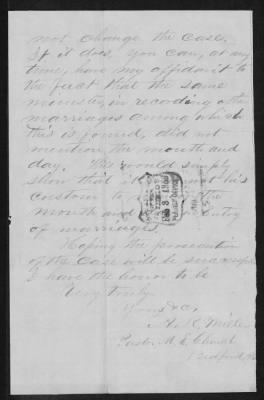 not change the case.
If it does, you can, at any
time, have my affidavit to
the fact that the same
minister, in recording other
marriages among which
this is found, did not
mention the month and
day. This would simply
show that it his
custom to the
month and entry
of marriages.
Hoping the prosecution
of the case will be
I have the honor to be
Very truly
Yours &c.
Pastor M. E. Church
Bedford